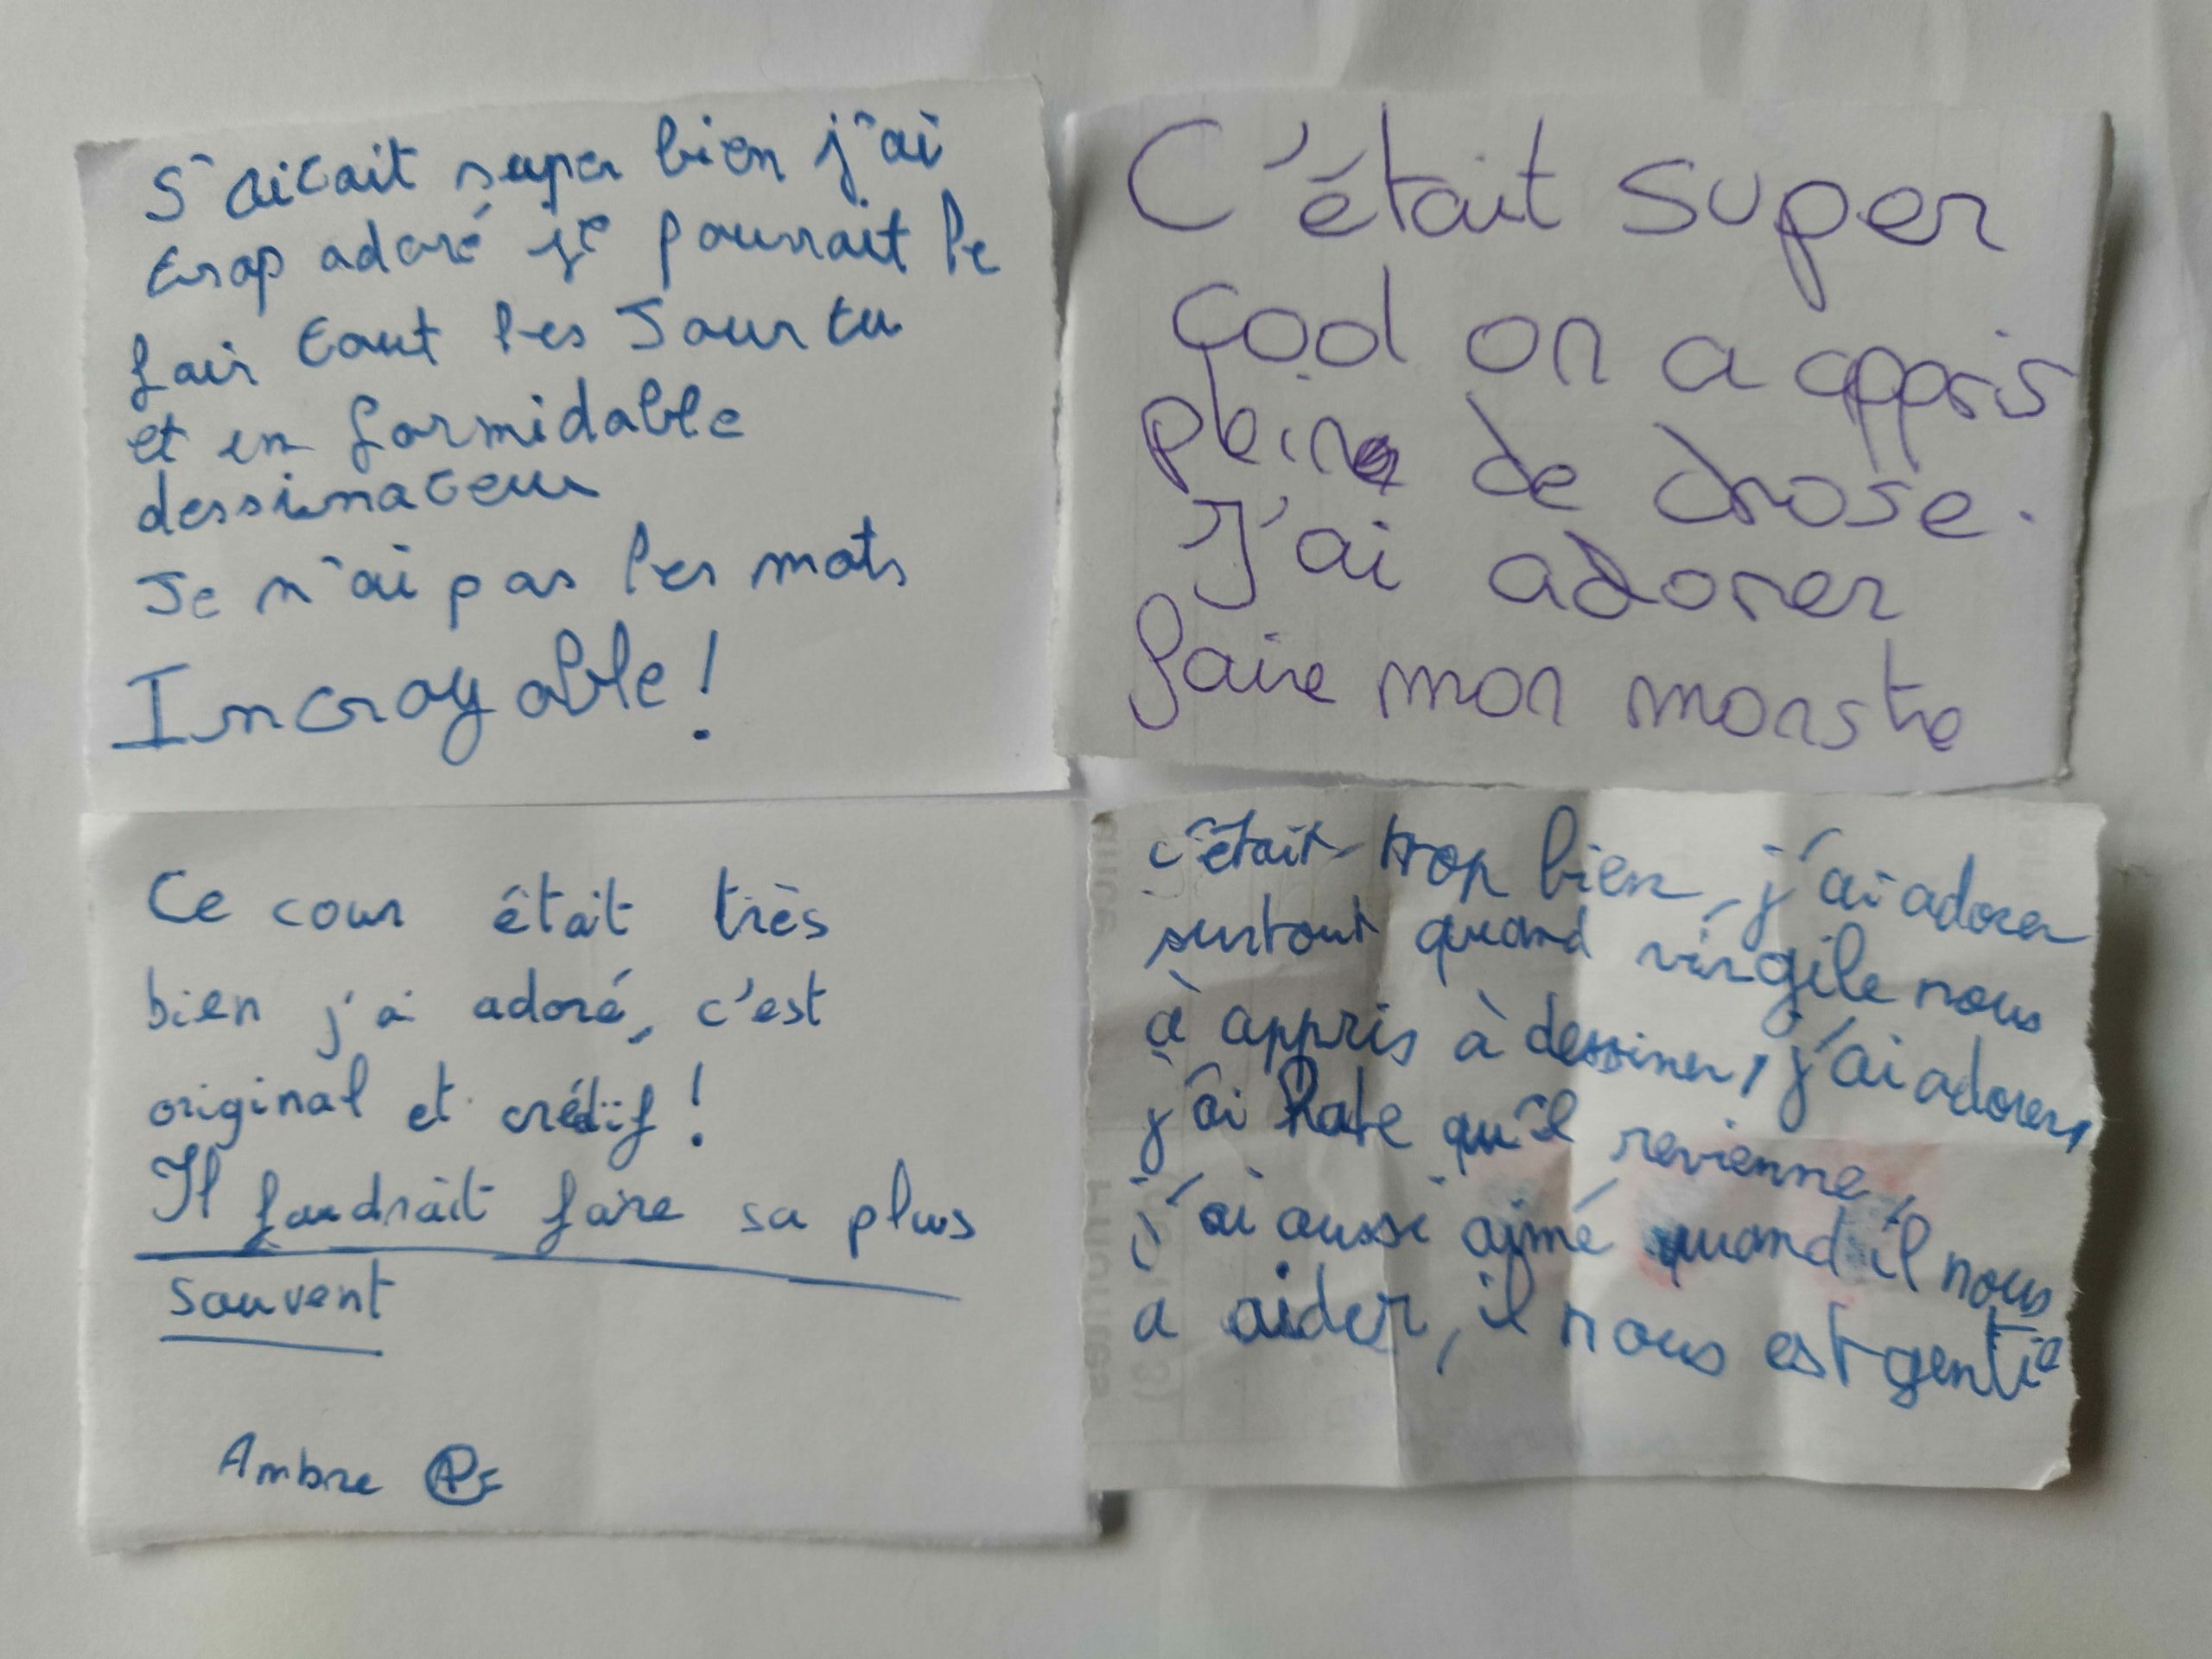 S'aitait super bien j'ai
trop adoré je pourrait le
fair tout les Jour tu
et un formidable
dessinateur
Je n'ai pas les mots
Incroyable!
C'était super
cool on a appris
plein de chose.
J'ai adorer
faire mon monstre
Ce cour était très
bien j'ai adoré, c'est
original et créatif!
Il faudrait faire sa plus
souvent
Ambre
c'était trop bien, j'ai adorer
surtout quand virgile nous
à appris à dessiner, j'ai adorer,
j'ai hate qu'il revienne,
j'ai aussi aimé quand il nous
a aider, il nous est gentil